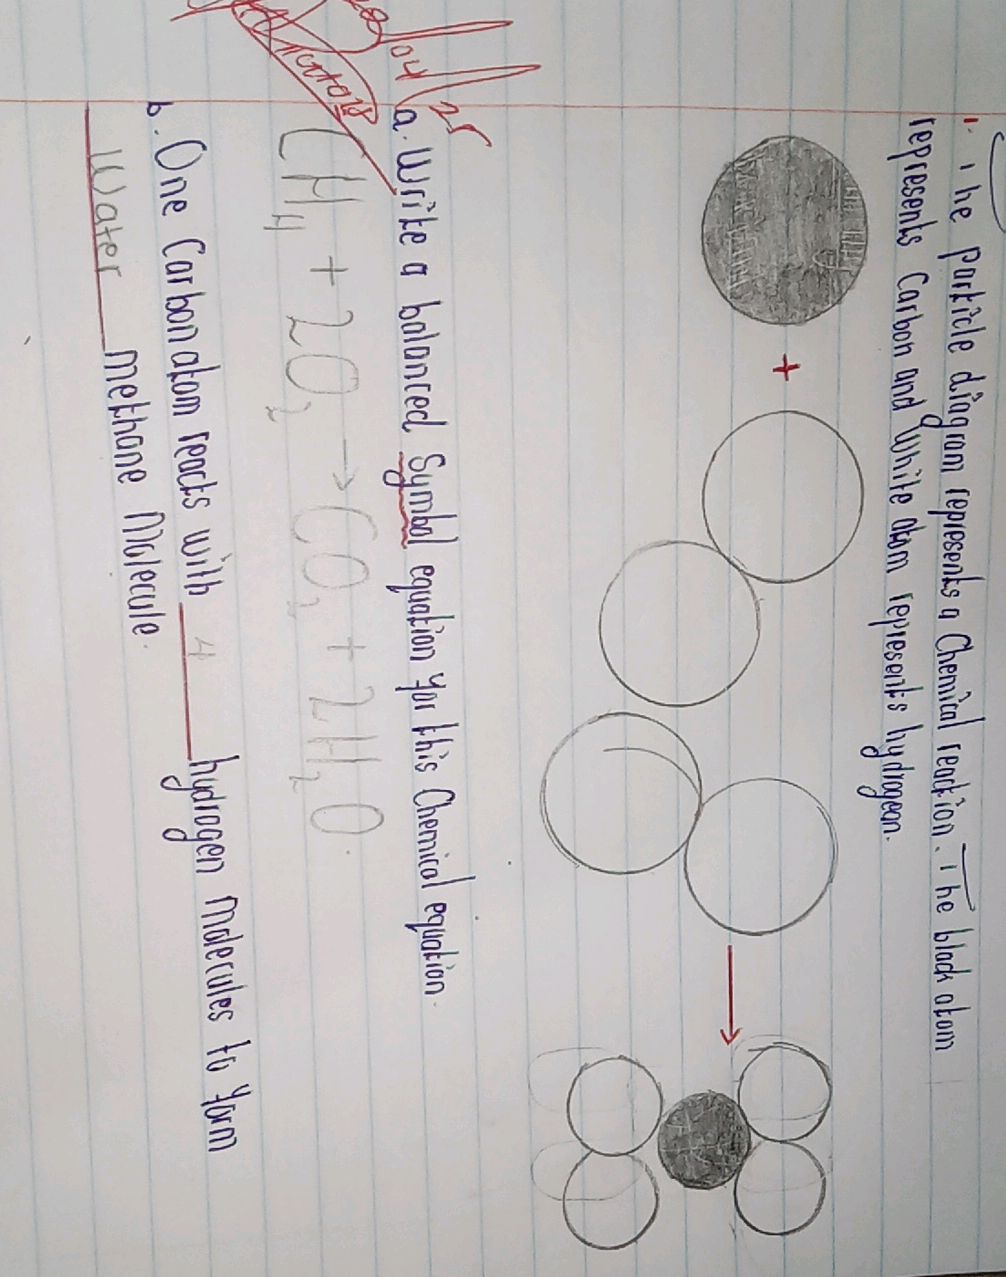 1. The particle diagram represents a Chemical reaction. The black atom
represents Carbon and White atom represents hydrogean.
+
a. Write a balanced Symbol equation for this Chemical equation.
CH4 + 2O2 → CO2 + 2H2O.
b. One Carbon atom reacts with 4 hydrogen Molecules to form
Water methane Molecule.